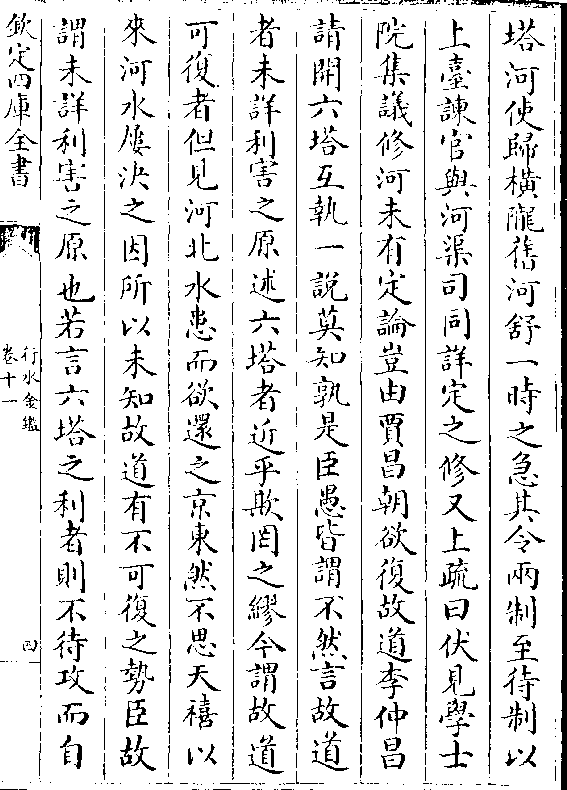 塔河使歸橫隴舊河舒一時之急其令兩制至待制以
上臺諫官與河渠司同詳定之修又上疏曰伏見學士
院集議修河未有定論豈由賈昌朝欲復故道李仲昌
請開六塔互執一說莫知孰是臣愚皆謂不然言故道
者未詳利害之原述六塔者近乎欺罔之繆今謂故道
可復者但見河北水患而欲還之京東然不思天禧以
來河水屢決之因所以未知故道有不可復之勢臣故
謂未詳利害之原也若言六塔之利者則不待攻而自
欽定四庫全書
行水金鑑
卷十一
四